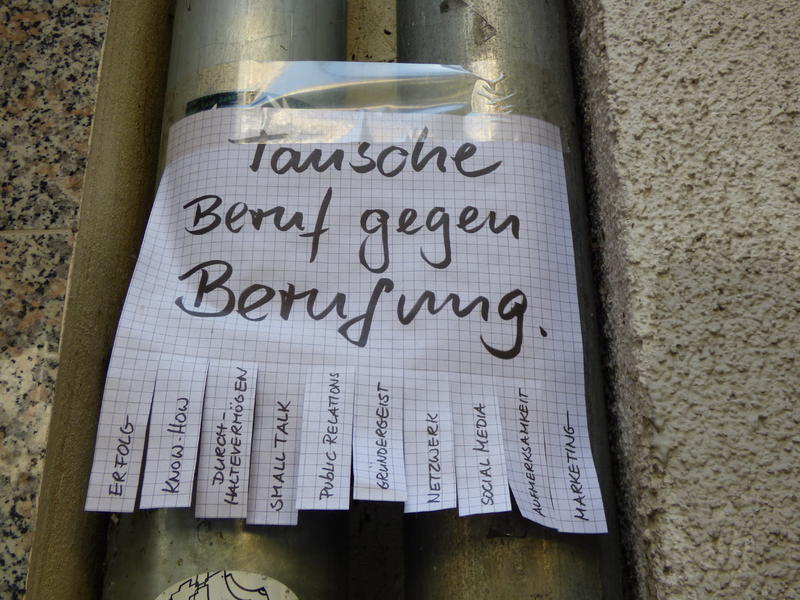 Tausche
Beruf gegen
Berufung.
ERFOLG
KNOW-HOW
DURCH-
HALTEVERMÖGEN
SMALL TALK
PUBLIC RELATIONS
GRÜNDERGEIST
NETZWERK
SOCIAL MEDIA
AUFMERKSAMKEIT
MARKETING